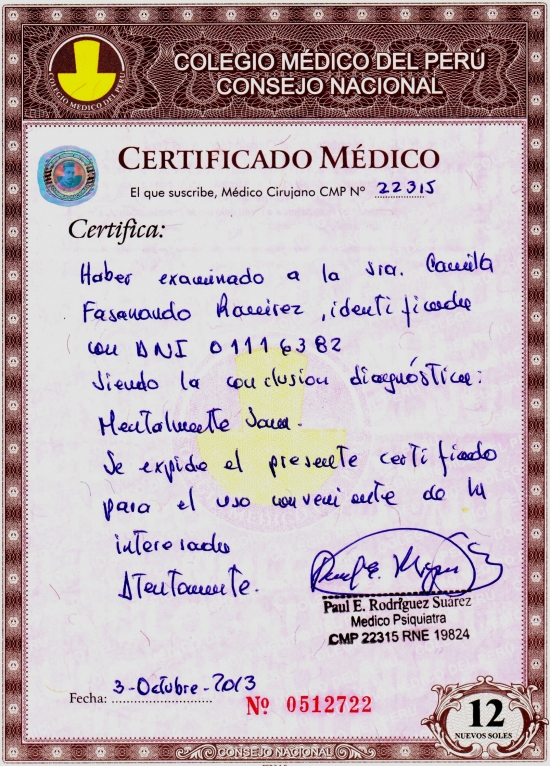 COLEGIO MÉDICO DEL PERÚ
CONSEJO NACIONAL
COLEGIO MEDICO DEL PERU
CERTIFICADO MÉDICO
El que suscribe, Médico Cirujano CMP Nº 22315
Certifica:
Haber examinado a la sra. Camila
Fasanando Ramirez, identificada
con DNI 01116382
siendo la conclusion diagnóstica:
Mentalmente Sana.
Se expide el presente certificado
para el uso conveniente de la
interesada
Atentamente.
Paul E. Rodríguez Suárez
Medico Psiquiatra
CMP 22315 RNE 19824
Fecha: 3-Octubre-2013
Nº 0512722
12
NUEVOS SOLES
CONSEJO NACIONAL